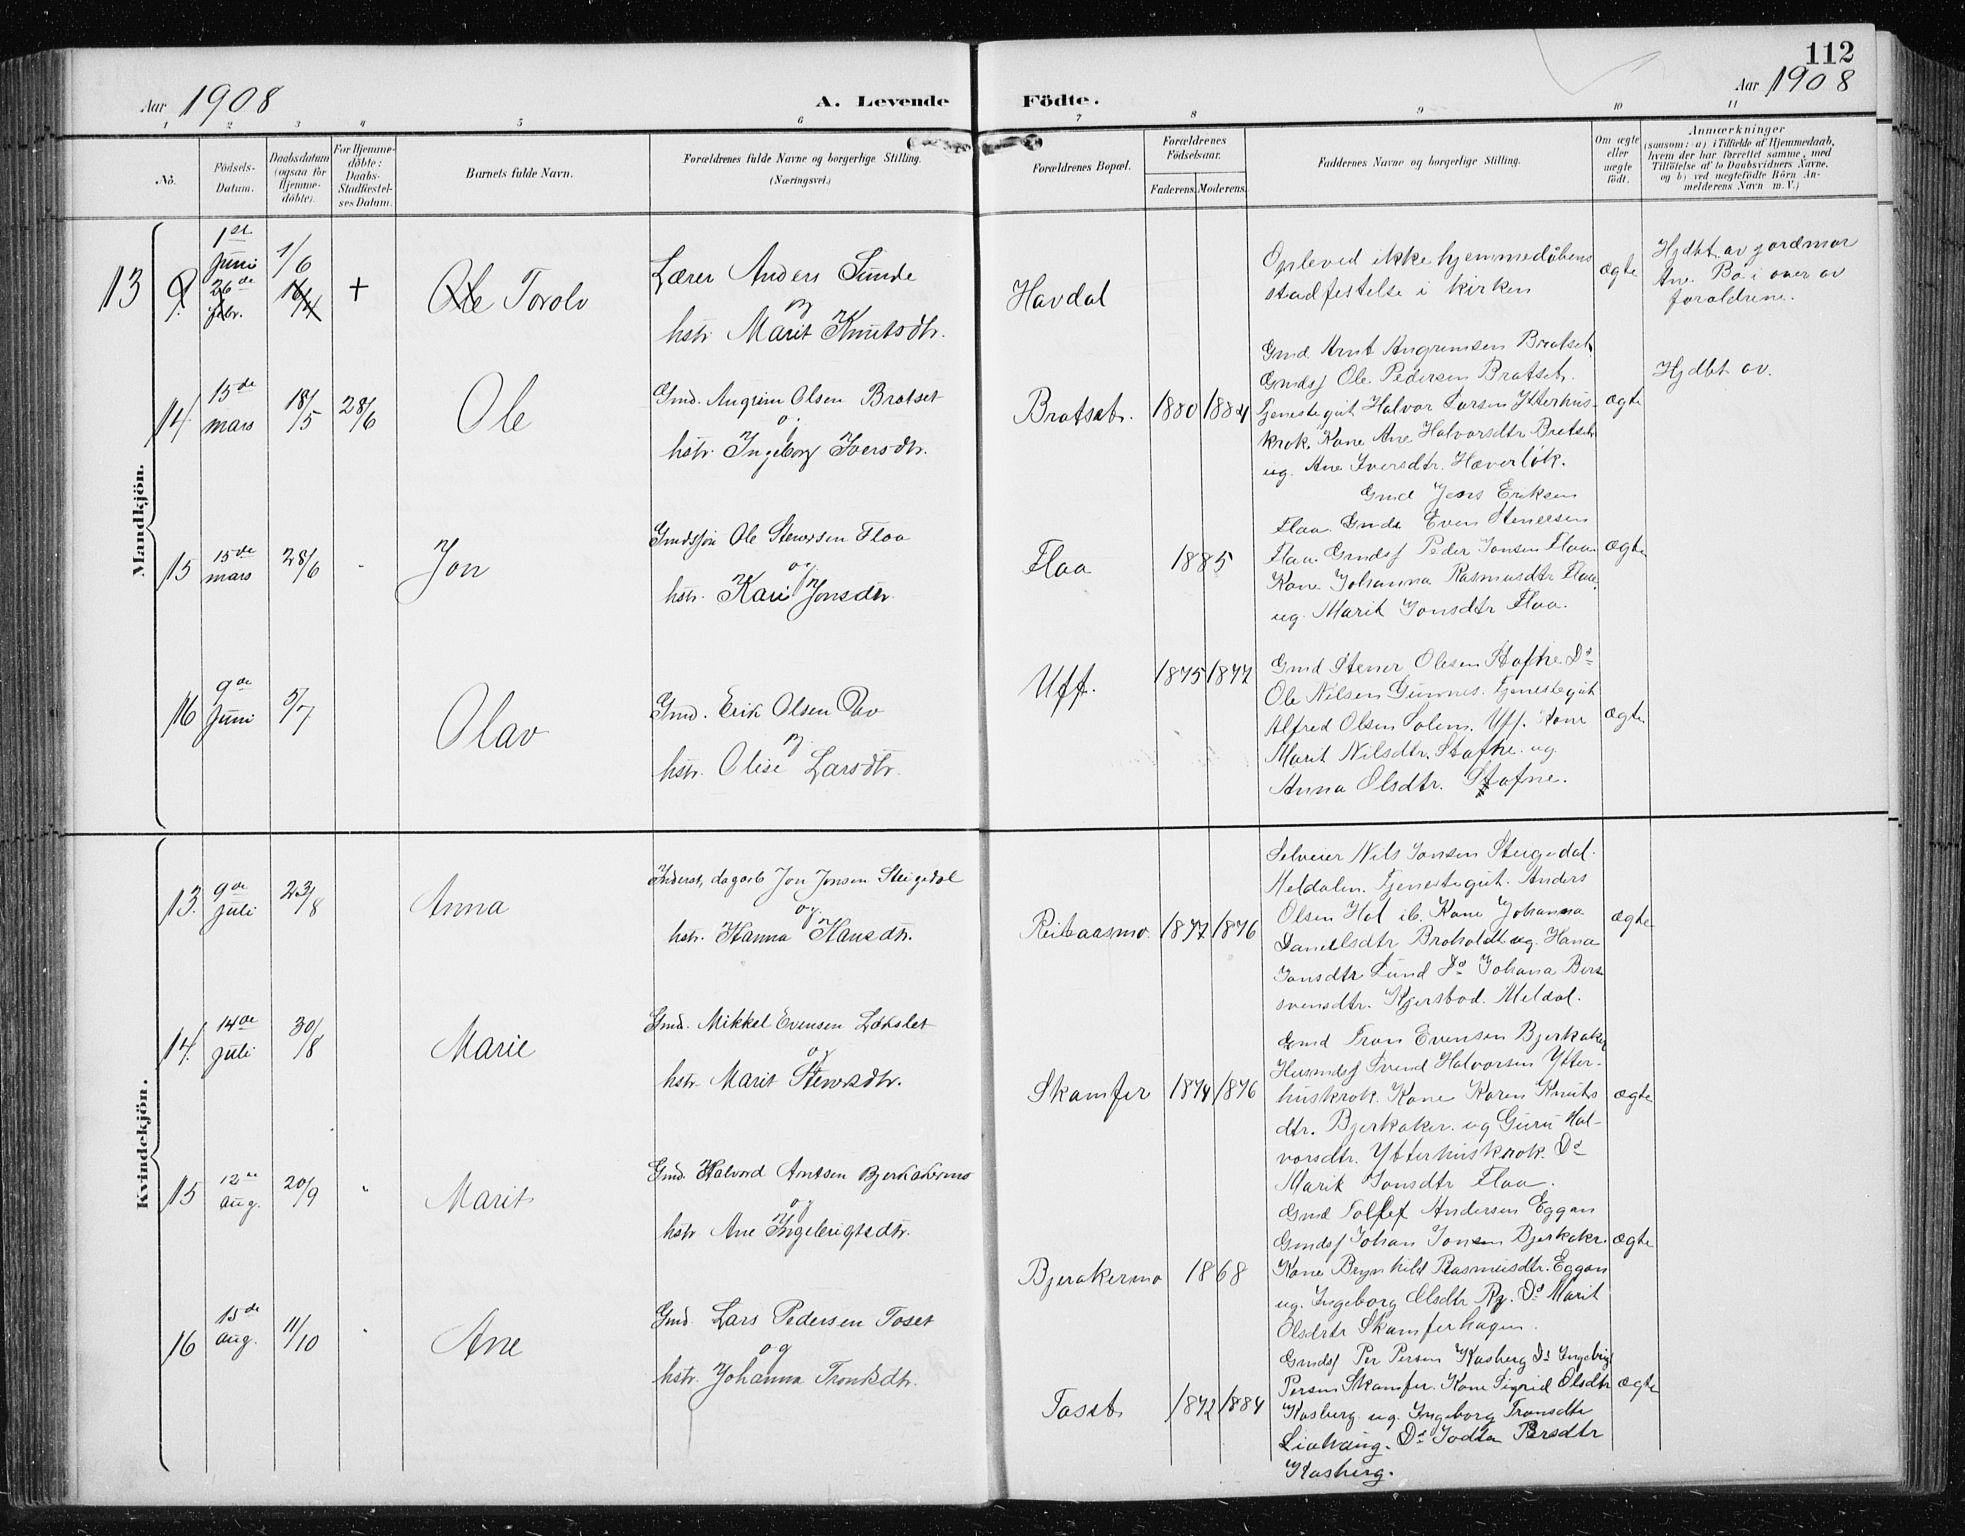 112
Aar 1908
A. Levende
Födte.
Aar 1908
1 2 3 4 5 6 7 8 9 10 11
No.
Födsels-
Datum.
Daabsdatum
(ogsaa for
Hjemme-
döbte).
For Hjemme-
döbte:
Daabs-
Stadfæstel-
ses Datum.
Barnets fulde Navn.
Forældrenes fulde Navne og borgerlige Stilling.
(Næringsvei.)
Forældrenes Bopæl.
Forældrenes
Födselsaar.
Faderens. Moderens.
Faddernes Navne og borgerlige Stilling.
Om ægte
eller
uægte
födt.
Anmærkninger
(saasom: a) i Tilfælde af Hjemmedaab,
hvem der har forrettet samme, med
Tilföielse af to Daabsvidners Navne,
og b) ved uægtefödte Börn An-
melderens Navn m. V.)
Mandkjön.
13
9.
1st
juni
26de
febr.
1/6
16/4
+
Ole Torolv
Lærer Anders Sunde
og
hstr. Marit Knutsdtr.
Havdal
Opleved ikke hjemmedåbens
stadfestelse i kirken
ægte
Hjdbt av jordmor
Ane Bø i over av
foraldrene.
14.
15de
mars
18/5
28/6
Ole
Gmd. Angrim Olsen Bratset
og
hstr. Ingeborg Iversdtr.
Bratset.
1880 1884
Gmd Arnt Angrimsen Bratset.
Gmdsf Ole Pedersen Bratset.
Tjenestegut Halvor Larsen Ytterhus-
krok. Kone Ane Halvorsdtr Bratset
ug. Ane Iversdtr. Hæverlök.
ægte
Hjdbt av.
15
15de
mars
28/6
-
Jon
Gmdssön Ole Stenersen Flaa
og
hstr. Kari Jonsdtr.
Flaa
1885
Gmd Jens Eriksen
Flaa. Gmds Even Stenersen
Flaa. Gmdsf Peder Jonsen Flaa
Kone Johanna Rasmusdtr Flaa
ug. Marit Jonsdtr Flaa.
ægte
16
9de
juni
5/7
Olav
Gmd. Erik Olsen Øav
og
hstr. Olise Larsdtr.
Uff.
1875 1877
Gmd Stener Olesen Stafne Do
Ole Nilsen Gunnes. Tjenestegut
Alfred Olsen Solem. Uff. Kone
Marit Nilsdtr. Stafne. ug.
Anna Olsdtr. Stafne.
ægte
Kvindekjön.
13.
9de
juli
23/8
Anna
Inderst, dagarb Jon Jonsen Steigedal
og
hstr. Hanna Hansdtr.
Reibaasmo.
1877 1876
Selveier Nils Jonsen Steigedal.
Meldalen. Tjenestegut. Anders
Olsen Hol ib. Kone Johanna
Danielsdtr Broholdt ug. Hana
Jonsdtr Lund Do Johana Ber-
svensdtr. Kjersbod. Meldal.
ægte
14.
14de
juli
30/8
Marie
Gmd. Mikkel Evensen Løkslet
og
hstr. Marit Stenersdtr.
Skamfer
1874 1876
Gmd Tron Evensen Bjerkaker
Husmdsf Svend Halvorsen Ytter-
huskrok. Kone Karen Knuts
dtr. Bjerkaker. ug Guru Hal-
vorsdtr. Ytterhuskrok. Do
Marit Jonsdtr Flaa.
ægte
15
12te
aug.
20/9
"
Marit
Gmd. Halvord Arntsen Bjerkakermo
og
hstr Ane Ingebrigtsdtr.
Bjerakermo
1868
Gmd Tollef Andersen Eggan
Gmdsf Johan Jonsen Bjerkakr.
Kone Brynhild Rasmusdtr. Eggan
ug. Ingeborg Olsdtr Ry. Do Marit
Olsdrtr Skamferhagen.
ægte
16
15de
aug.
11/10
"
Ane
Gmd. Lars Pedersen Toset
og
hstr. Johanna Tronsdtr.
Toset
1872 1884
Gmdsf Per Persen Kasberg Do Ingebrigt
Persen Skamfer. Kone Sigrid Olsdtr
Kasberg ug. Ingeborg Tronsdtr
Liahaug. Do Persdtr
Kasberg.
ægte